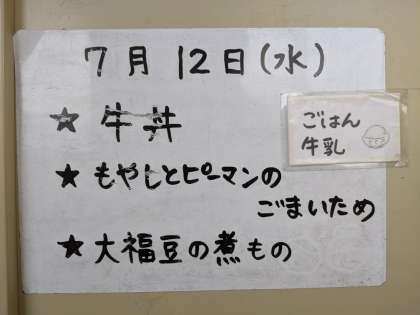 7月12日(水)
★ 牛丼
ごはん
牛乳
★ もやしとピーマンの
ごまいため
★ 大福豆の煮もの